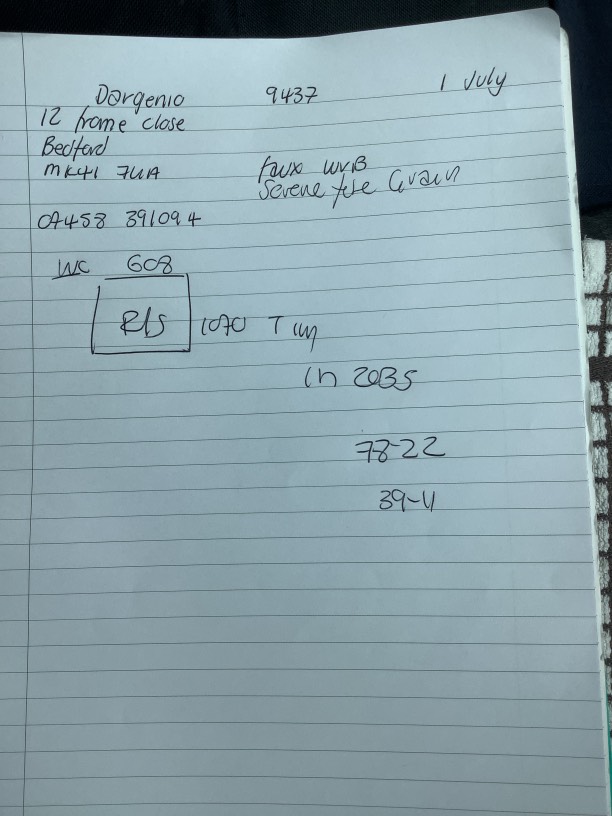 Dargenio 9437 1 July
12 frome close
Bedford
MK41 7UA
Faux WVB
Serene fire Grain
07458 391094
WC 608
R/S 1070 T
In 2035
78-22
39-11